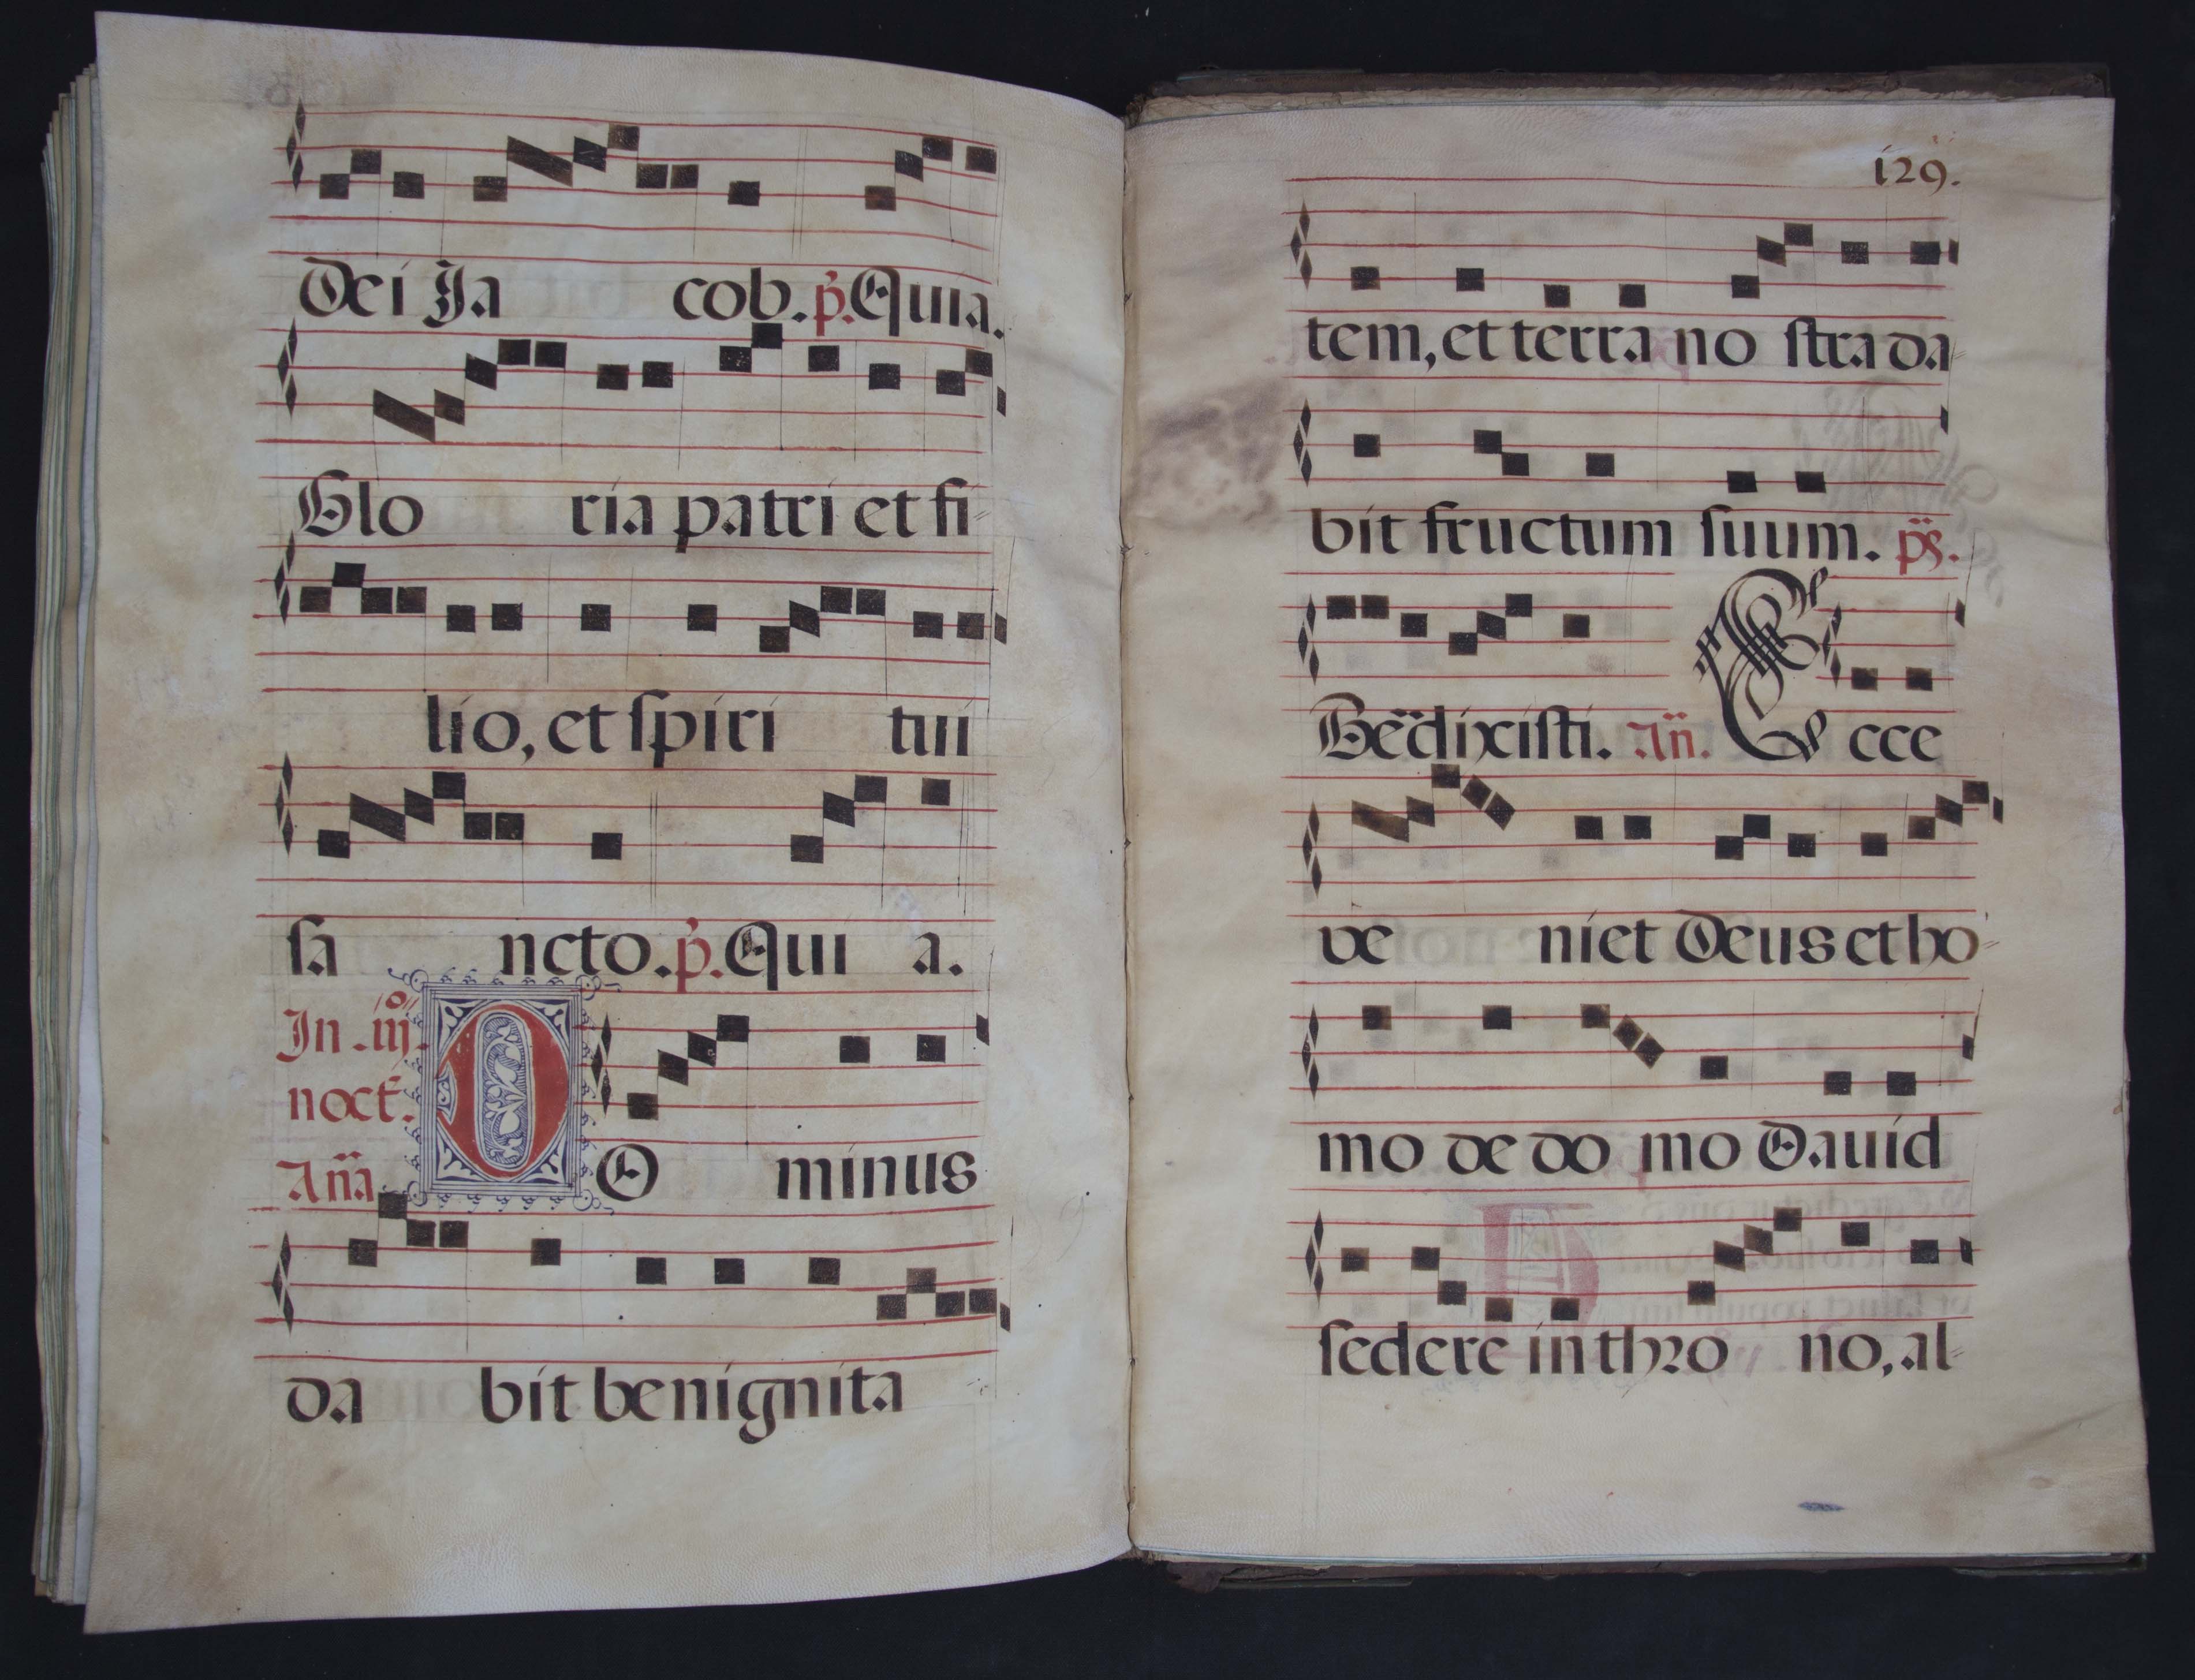 Dei Ja cob. p̃. Quia.
Glo ria patri et fi-
lio, et ſpiri tui
ſa ncto. p̃. Qui a.
In .iij.º
noct̃.
Añã
D O minus
da bit benignita
129.
tem, et terra no ſtra da-
bit fructum ſuum. ps̃.
Bẽdixiſti. Añ. E cce
ve niet Deus et ho-
mo de do mo David
ſedere in thro no, al-